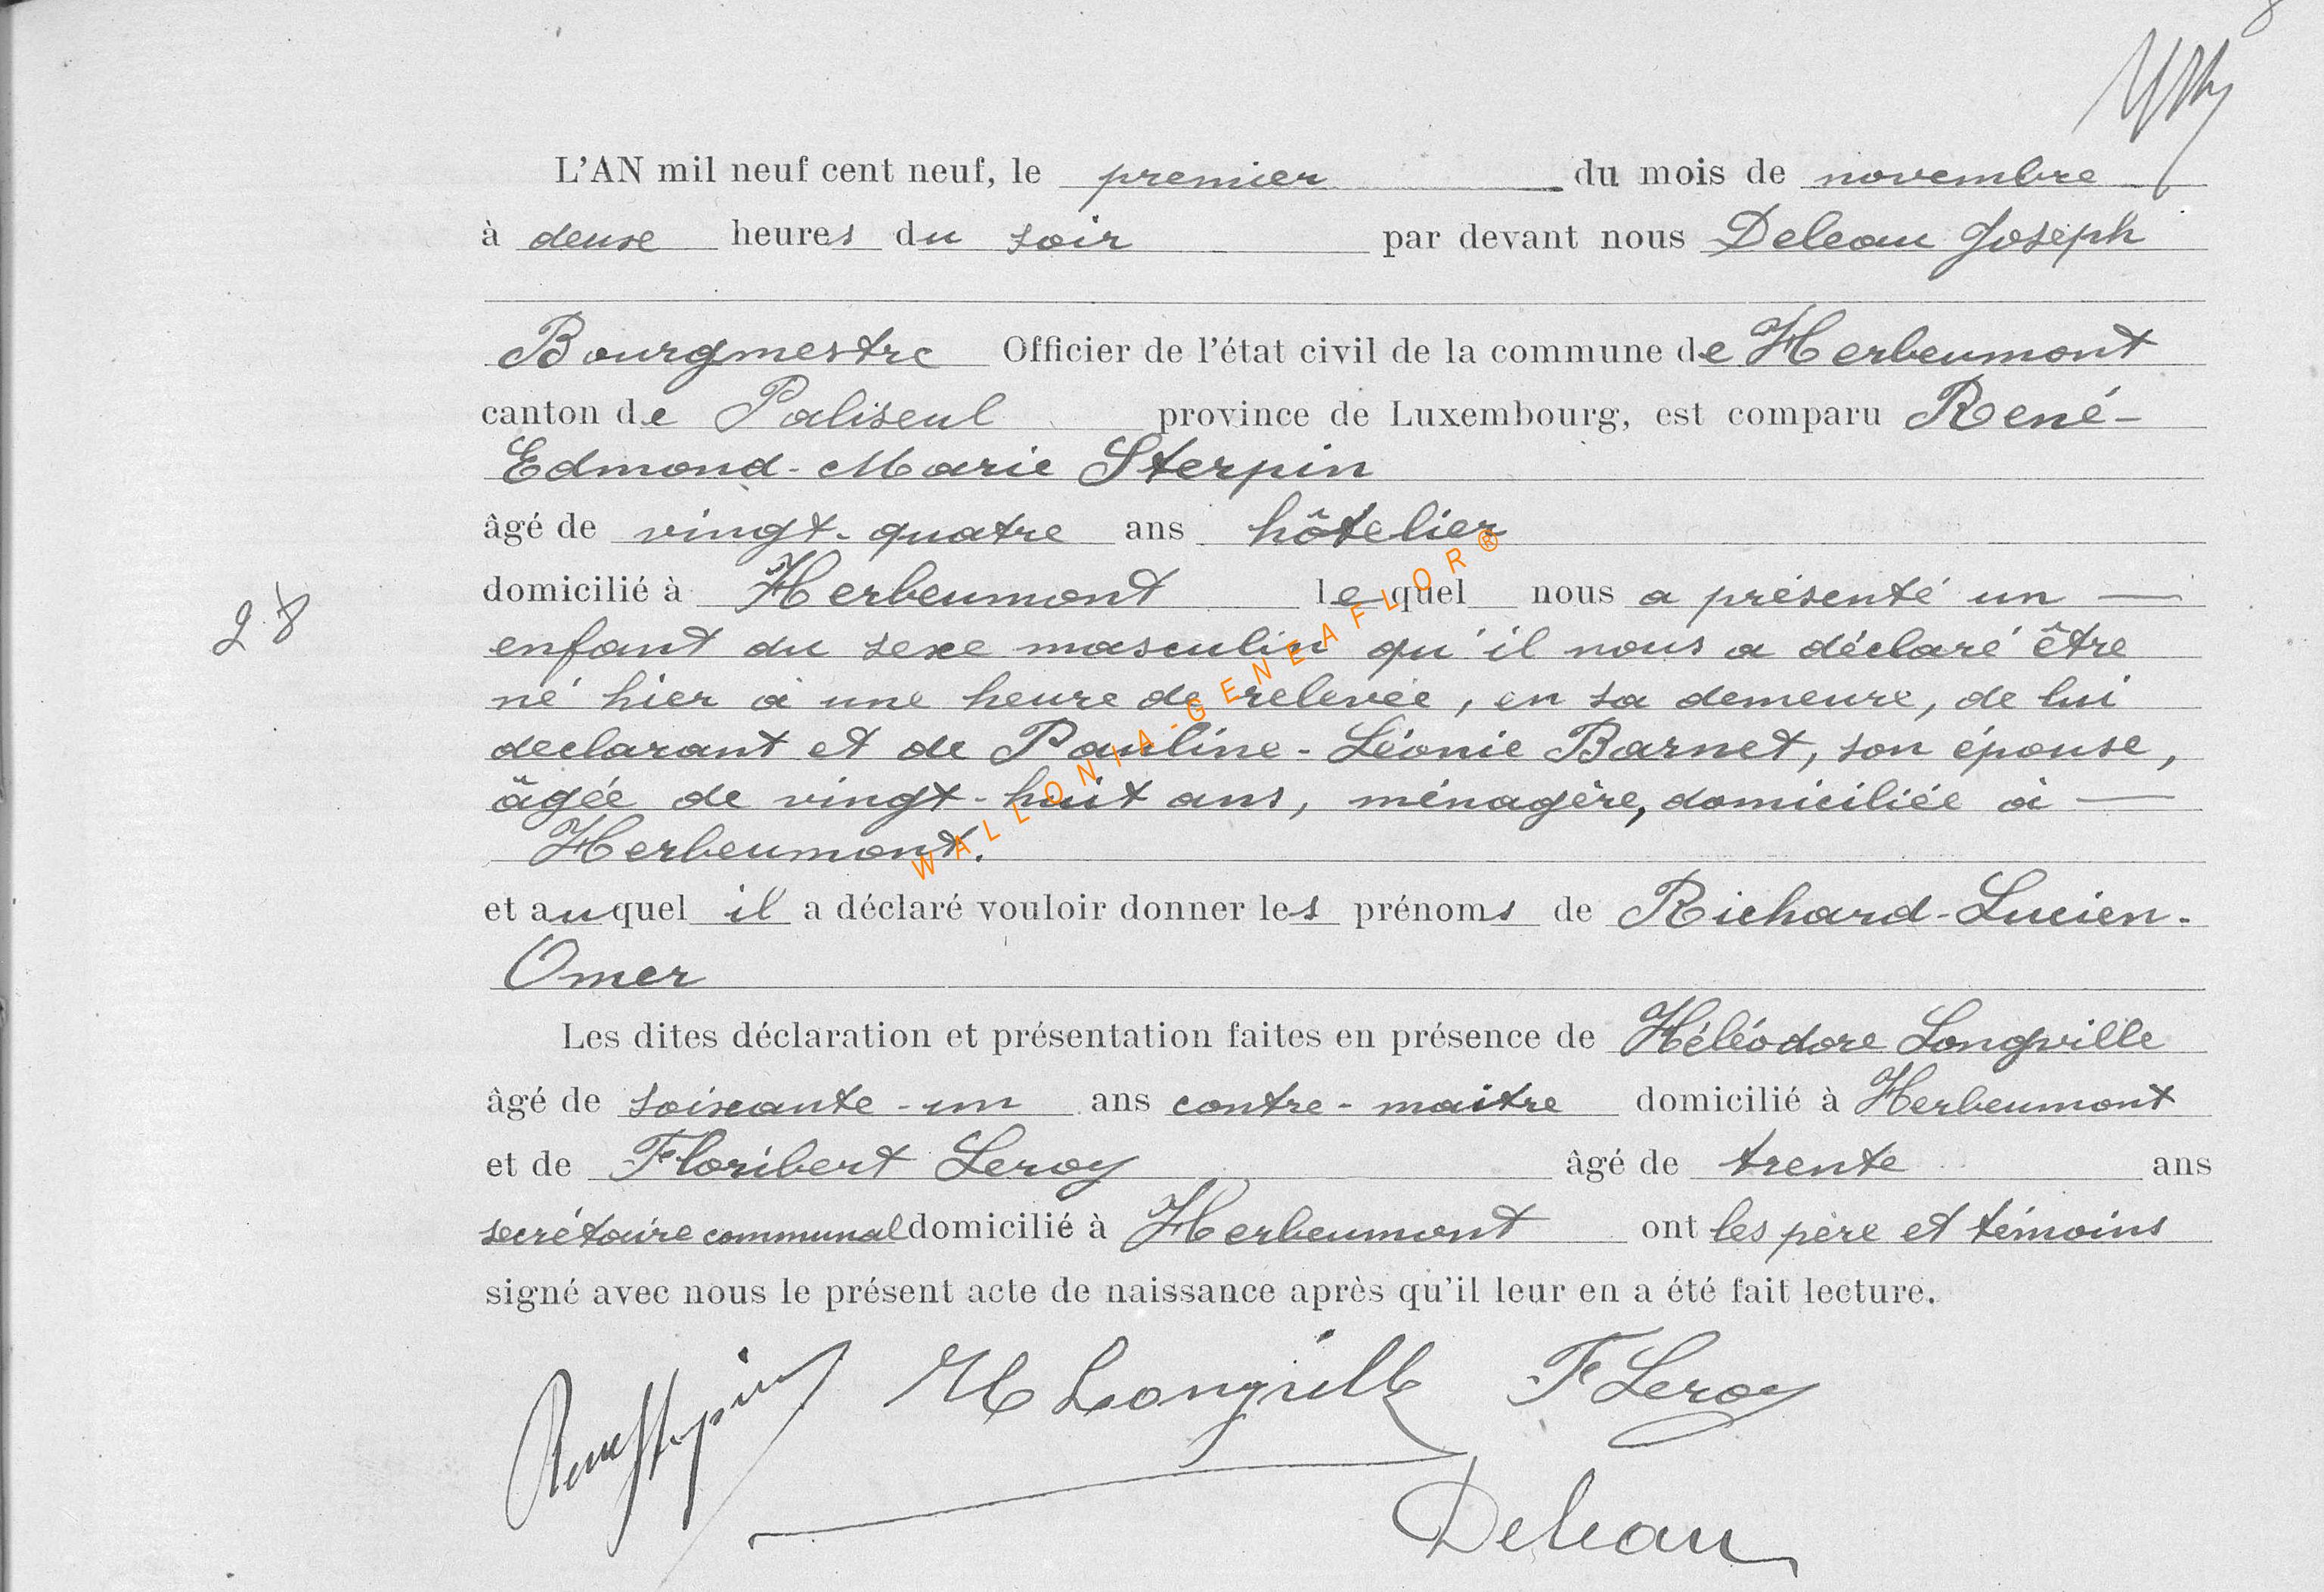 L'AN mil neuf cent neuf, le premier du mois de novembre
à deuxe heures du soir par devant nous Deleau Joseph
Bourgmestre Officier de l'état civil de la commune de Herbeumont
canton de Paliseul province de Luxembourg, est comparu René-
Edmond-Marie Sterpin
âgé de vingt-quatre ans hôtelier
domicilié à Herbeumont lequel nous a présenté un —
28
enfant du sexe masculin qu'il nous a déclaré être
né hier à une heure de relevée, en sa demeure, de lui
declarant et de Pauline-Léonie Barnet, son épouse,
âgée de vingt-huit ans, ménagère, domiciliée à —
Herbeumont.
WALLONIA-GENEAFLOR®
et auquel il a déclaré vouloir donner les prénoms de Richard-Lucien-
Omer
Les dites déclaration et présentation faites en présence de Héléodore Longville
âgé de soixante-un ans contre-maitre domicilié à Herbeumont
et de Floribert Leroy âgé de trente ans
secrétaire communal domicilié à Herbeumont ont les père et témoins
signé avec nous le présent acte de naissance après qu'il leur en a été fait lecture.
René Sterpin H Longville F Leroy
Deleau